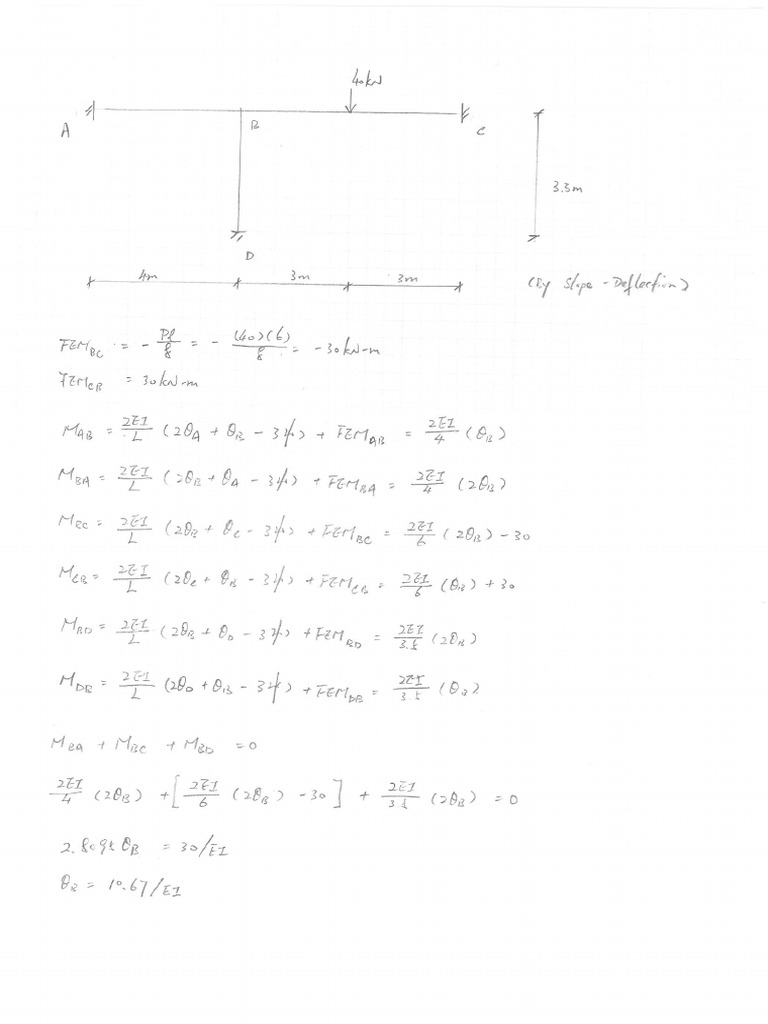 40kN
A B C
3.3m
D
4m 3m 3m
(By Slope-Deflection)
FEM_BC = - Pl/8 = - (40)(6)/8 = -30kN-m
FEM_CB = 30kN-m
M_AB = 2EI/L (2θ_A + θ_B - 3ψ) + FEM_AB = 2EI/4 (θ_B)
M_BA = 2EI/L (2θ_B + θ_A - 3ψ) + FEM_BA = 2EI/4 (2θ_B)
M_BC = 2EI/L (2θ_B + θ_C - 3ψ) + FEM_BC = 2EI/6 (2θ_B) - 30
M_CB = 2EI/L (2θ_C + θ_B - 3ψ) + FEM_CB = 2EI/6 (θ_B) + 30
M_BD = 2EI/L (2θ_B + θ_D - 3ψ) + FEM_BD = 2EI/3.5 (2θ_B)
M_DB = 2EI/L (2θ_D + θ_B - 3ψ) + FEM_DB = 2EI/3.5 (θ_B)
M_BA + M_BC + M_BD = 0
2EI/4 (2θ_B) + [2EI/6 (2θ_B) - 30] + 2EI/3.5 (2θ_B) = 0
2.8095 θ_B = 30/EI
θ_B = 10.67/EI